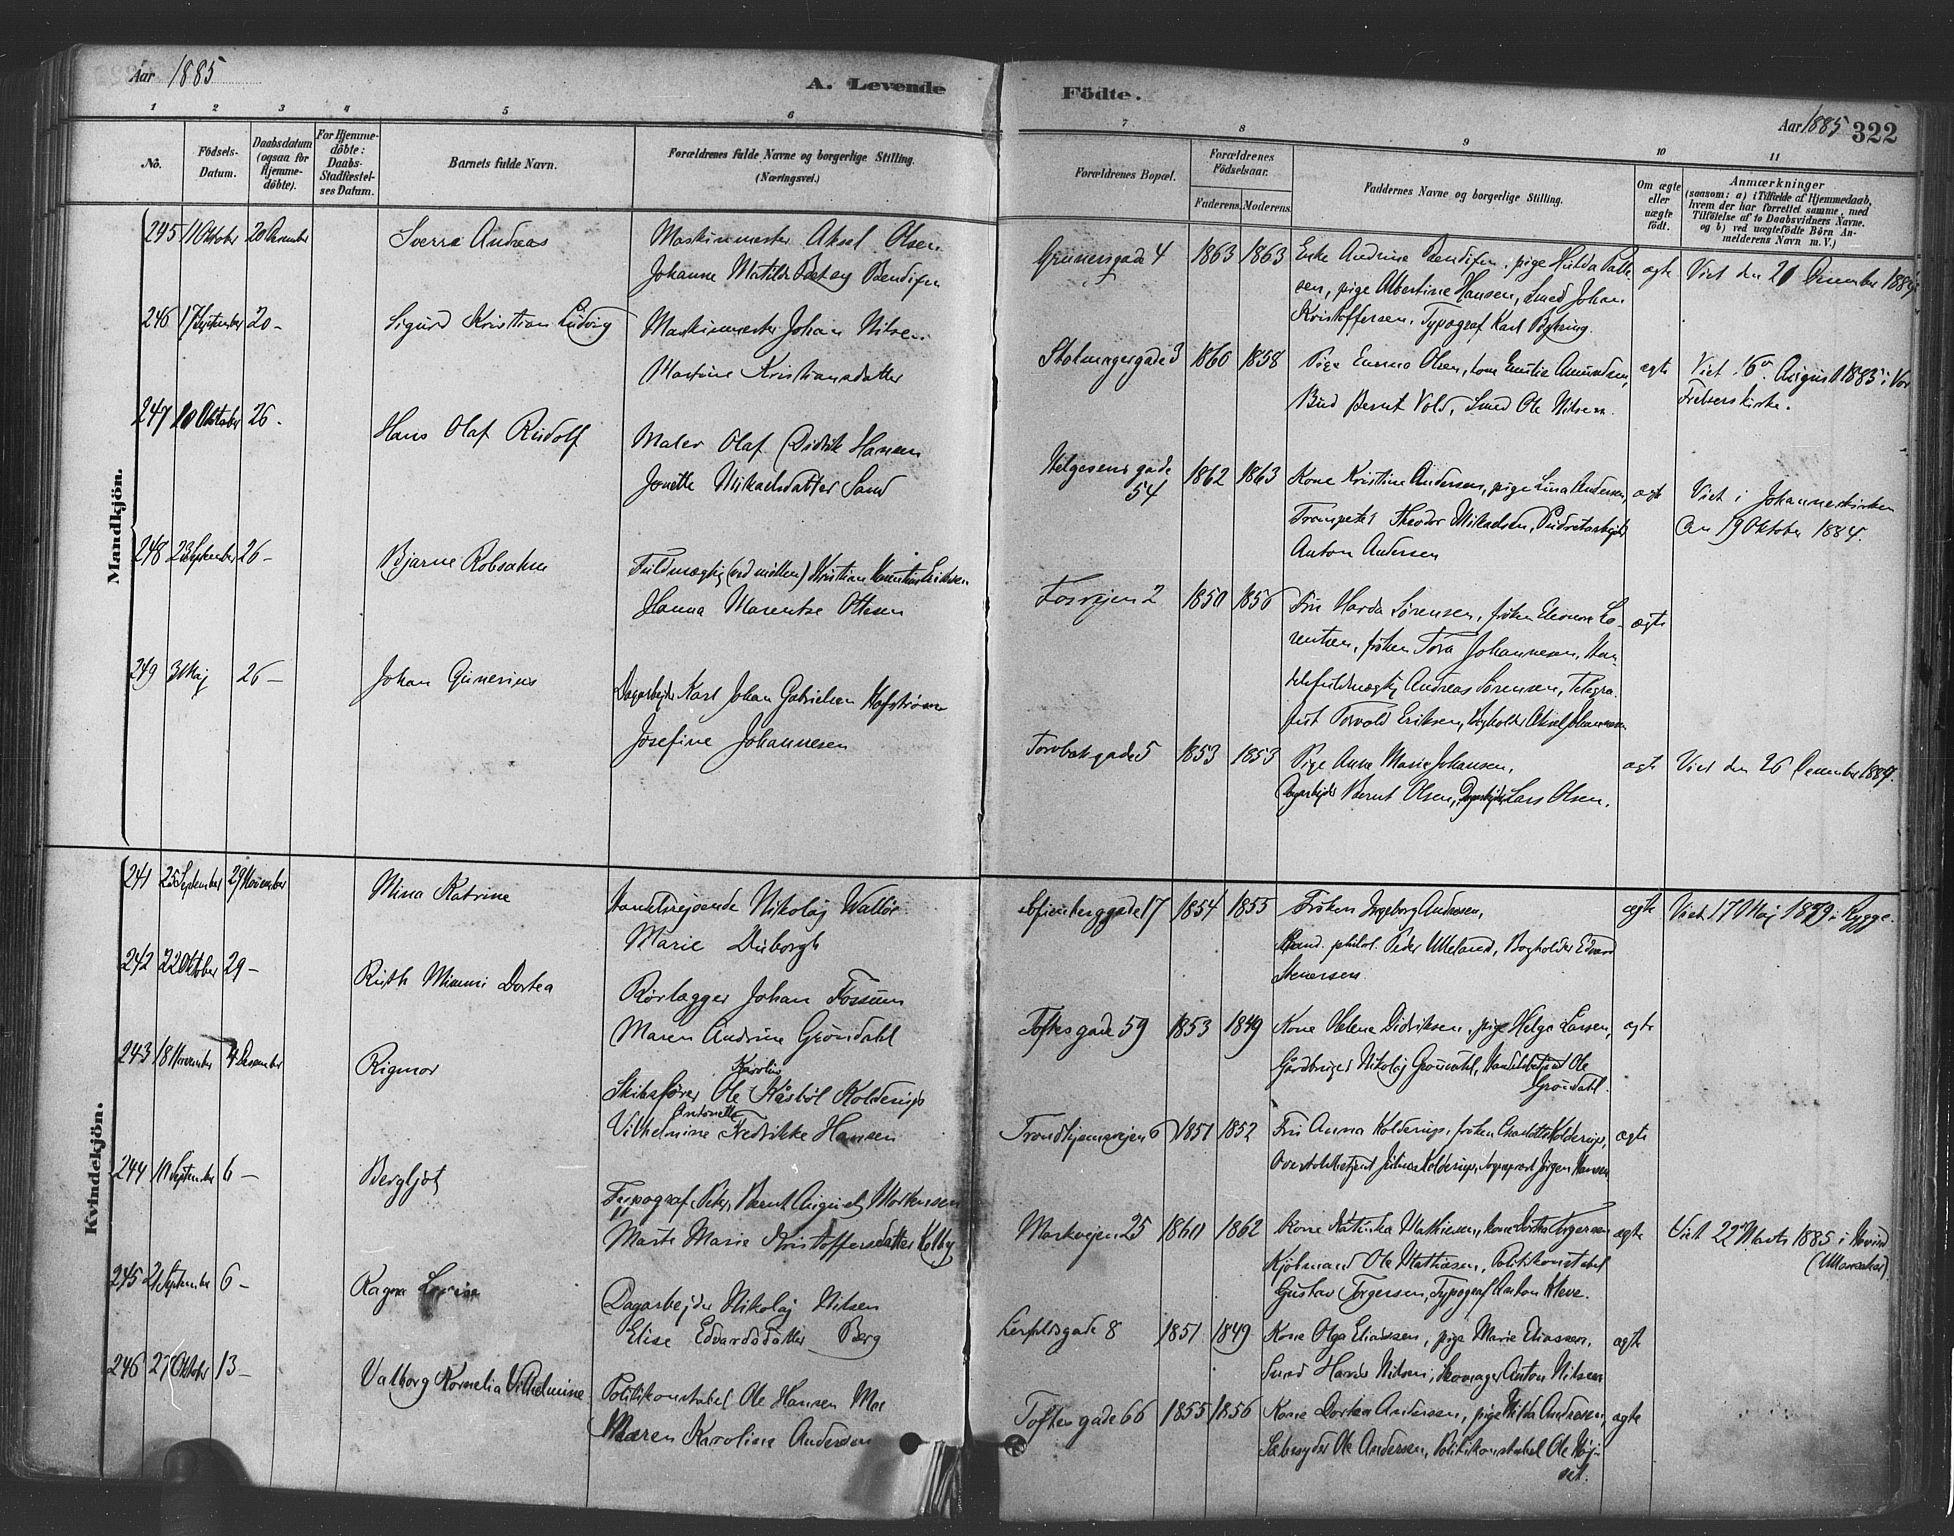 Aar 1885
A. Levende
Födte.
Aar 1885 322
1 2 3 4 5 6 7 8 9 10 11
No.
Födsels-Datum.
Daabsdatum (ogsaa for Hjemme-döbte).
For Hjemme-döbte: Daabs-Stadfæstel-ses Datum.
Barnets fulde Navn.
Forældrenes fulde Navne og borgerlige Stilling. (Næringsvei.)
Forældrenes Bopæl.
Forældrenes Födselsaar.
Faderens. Moderens.
Faddernes Navne og borgerlige Stilling.
Om ægte eller uægte födt.
Anmærkninger
(saasom: a) i Tilfælde af Hjemmedaab, hvem der har forrettet samme, med Tilföielse af to Daabsvidners Navne. og b) ved uægtefödte Börn An-melderens Navn m. V.)
Mandkjön.
245 11 Oktober 20 December Sverre Andreas Maskinmester Aksel Olsen
Johanne Matilde Bendiksen
Grünersgade 4 1863 1863 Enke Andrine, pige Hulda
sen, pige Albertine Hansen, Smed Johan
Kristoffersen, Typograf Karl
ægte Viet den December 1884
246 17 September 20 - Sigurd Kristian Ludvig Maskinmester Johan Nilsen
Martine Kristiansdatter
1860 1858 Pige Emma Olsen, kone Emilie Amundsen,
Bud Bernt Vold, Smed Ole Nilsen.
ægte Viet 16 August 1883 i Vor
Frelserskirke.
247 10 Oktober 26 - Hans Olaf Rudolf Maler Olaf Didrik Hansen
Jonette Mikaelsdatter Sand
Helgesensgade
54 1862 1863 Kone Kristine Andersen, pige Lina Andersen,
Trompeter Theodor Mikaelsen,
Anton Andersen
ægte Viet i Johanneskirken
den 19 Oktober 1884.
248 23 September 26 - Bjarne Robsahm Fuldmægtig Kristian Eriksen
Hanna Marentse Ottesen
Fosvejen 2 1850 1856 Fru Harda Sørensen, frøken Eleonora Lo-
rentsen, frøken Tora Johannesen, Han-
delsfuldmægtig Andreas Sørensen, Telegra-
fist Torvald Eriksen, Bogholder Aksel Johannesen
ægte
249 3 Maj 26 - Johan Gunerius Dagarbejder Karl Johan Gabrielsen Hofstrøm
Josefine Johannesen
Torvbakgade 5 1853 1853 Pige Anna Marie Johansen,
Dagarbejder Bernt Olsen, Dagarbejder Lars Olsen.
ægte Viet den 26 December 1884.
Kvindekjön.
241 25 September 29 November Mina Katrine Handelsrejsende Nikolaj Walløe
Marie Duborgh
Sofienberggade 17 1854 1855 Frøken Ingeborg Andresen,
Cand. philol. Peder Ulleland, Bogholder Edvard
Stenersen
ægte Viet 17 Maj 1879 i Rygge.
242 22 Oktober 29 - Ruth Mimmi Dortea Rørlægger Johan Fossum
Maren Andrine Grøndahl
Toftesgade 59 1853 1849 Kone Helene Didriksen, pige Helga Larsen,
Gårdbruger Nikolaj Grøndahl, Handelsbetjent Ole
Grøndahl.
ægte
243 18 November 4 December Rigmor
Skibsfører Ole Kolderup
Vilhelmine Antonette Fredrikke Hansen
Trondhjemsvejen 6 1851 1852 Fru Anna Kolderup, frøken Charlotte Kolderup,
Kolderup, Jørgen Hansen
ægte
244 10 September 6 - Bergljot
Typograf Peter Bernt August Mortensen
Marte Marie Kristoffersdatter Kolby
Markvejen 25 1860 1862 Kone Katinka Mathiesen, kone Dorthea Torgersen
Kjøbmand Ole Mathiesen, Politikonstabel
Gustav Torgersen, Typograf Anton Kleve.
ægte Viet 22 Marts 1885 i Hovind
(Ullensaker)
245 21 September 6 - Ragna Lovise
Dagarbejder Nikolaj Nilsen
Elise Edvardsdatter Berg
Herslebsgade 8 1851 1849 Kone Olga Eliassen, pige Marie Eliassen,
Smed Harald Nilsen, Skomager Anton Nilsen
ægte
246 27 Oktober 13 - Valborg Kornelia Vilhelmine Politikonstabel Ole Hansen Moe
Maren Karoline Andersen
Toftesgade 66 1855 1856 Kone Dortea Andersen, pige Hilda Andresen,
Sæbesyder Ole Andersen, Politikonstabel Ole
ægte